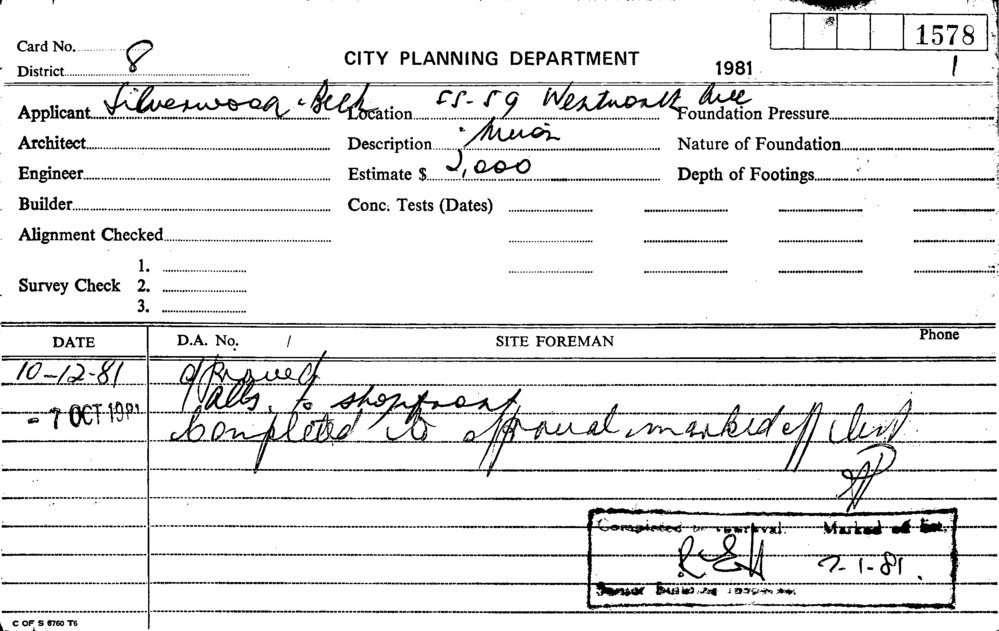 1578
Card No.
8
CITY PLANNING DEPARTMENT
District
1981 1
Applicant Silverwood & Beck Location 55-59 Wentworth Ave Foundation Pressure
Architect Description Minor Nature of Foundation
Engineer Estimate $ 2,000 Depth of Footings
Builder Conc. Tests (Dates)
Alignment Checked
1.
Survey Check 2.
3.
DATE D.A. No. / SITE FOREMAN Phone
10-12-81 approved
Alts. to shopfront
- 7 OCT 1981
Completed to approval marked off list
Completed to approval. Marked off list.
7-1-81.
Senior Building Inspector
C OF S 6760 T6